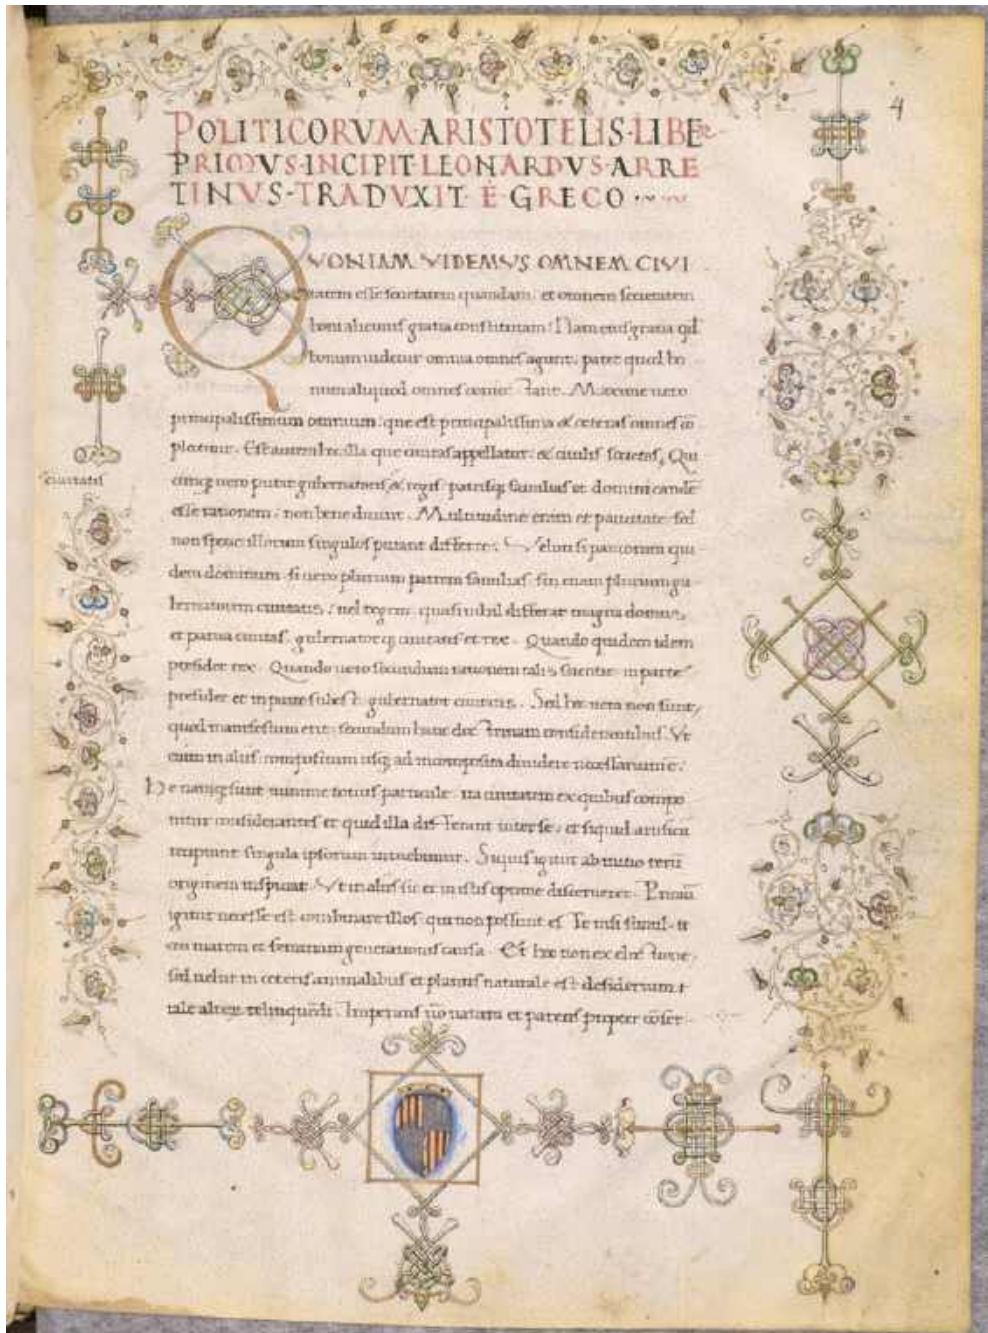 4
POLITICORVM·ARISTOTELIS·LIBER
PRIMVS·INCIPIT·LEONARDVS·ARRE
TINVS·TRADVXIT·E·GRECO
QVONIAM VIDEMVS OMNEM CIVI
tatem esse societatem quandam et omnem societatem
boni alicuius gratia constitutam: Nam eius gratia qd
bonum uidetur omnia omnes agunt, patet quod bo
num aliquod omnes Maxime uero
principalissimum omnium: que est principalissima & ceteras omnes cō
plectitur. Est autem hec illa que ciuitas appellatur & ciuilis societas. Qui
cunq; uero putat gubernatoris & regis patrisq; familias et domini eandē
esse rationem, non bene dicunt. Multitudine enim et paucitate sed
non specie illorum singulos putant differre. Velut si paucorum qui
dem dominum, si uero plurium patrem familias, sin etiam plurium gu
bernatorem ciuitatis, uel regem, quasi nihil differat magna domus,
et parua ciuitas, gubernatorq; ciuitatis et rex. Quando quidem idem
presidet rex. Quando uero secundum rationem talis scientie in parte
presidet et in parte subest gubernator ciuitatis. Sed hec uera non sunt,
quod manifestum erit secundum hanc doctrinam considerantibus. Vt
enim in aliis compositum usq; ad incomposita diuidere necessarium ē.
He nanq; sunt minime totius particule. ita ciuitatem ex quibus compo
nitur considerantes et quid illa differant inter se, et siquid artificii
recipiunt singula ipsorum intuebimur. Siquis igitur ab initio rerū
originem inspiciat. Vt in aliis sic et in istis optime discerneret. Primū
igitur necesse est combinare illos qui non possunt esse sine simul. ut
cū marem et feminam generationis causa. Et hec non ex electione
sed uelut in ceteris animalibus et plantis naturale est desiderium
tale alterū relinquēdi. Imperans uō natura et parens propter cōser
ciuitatis